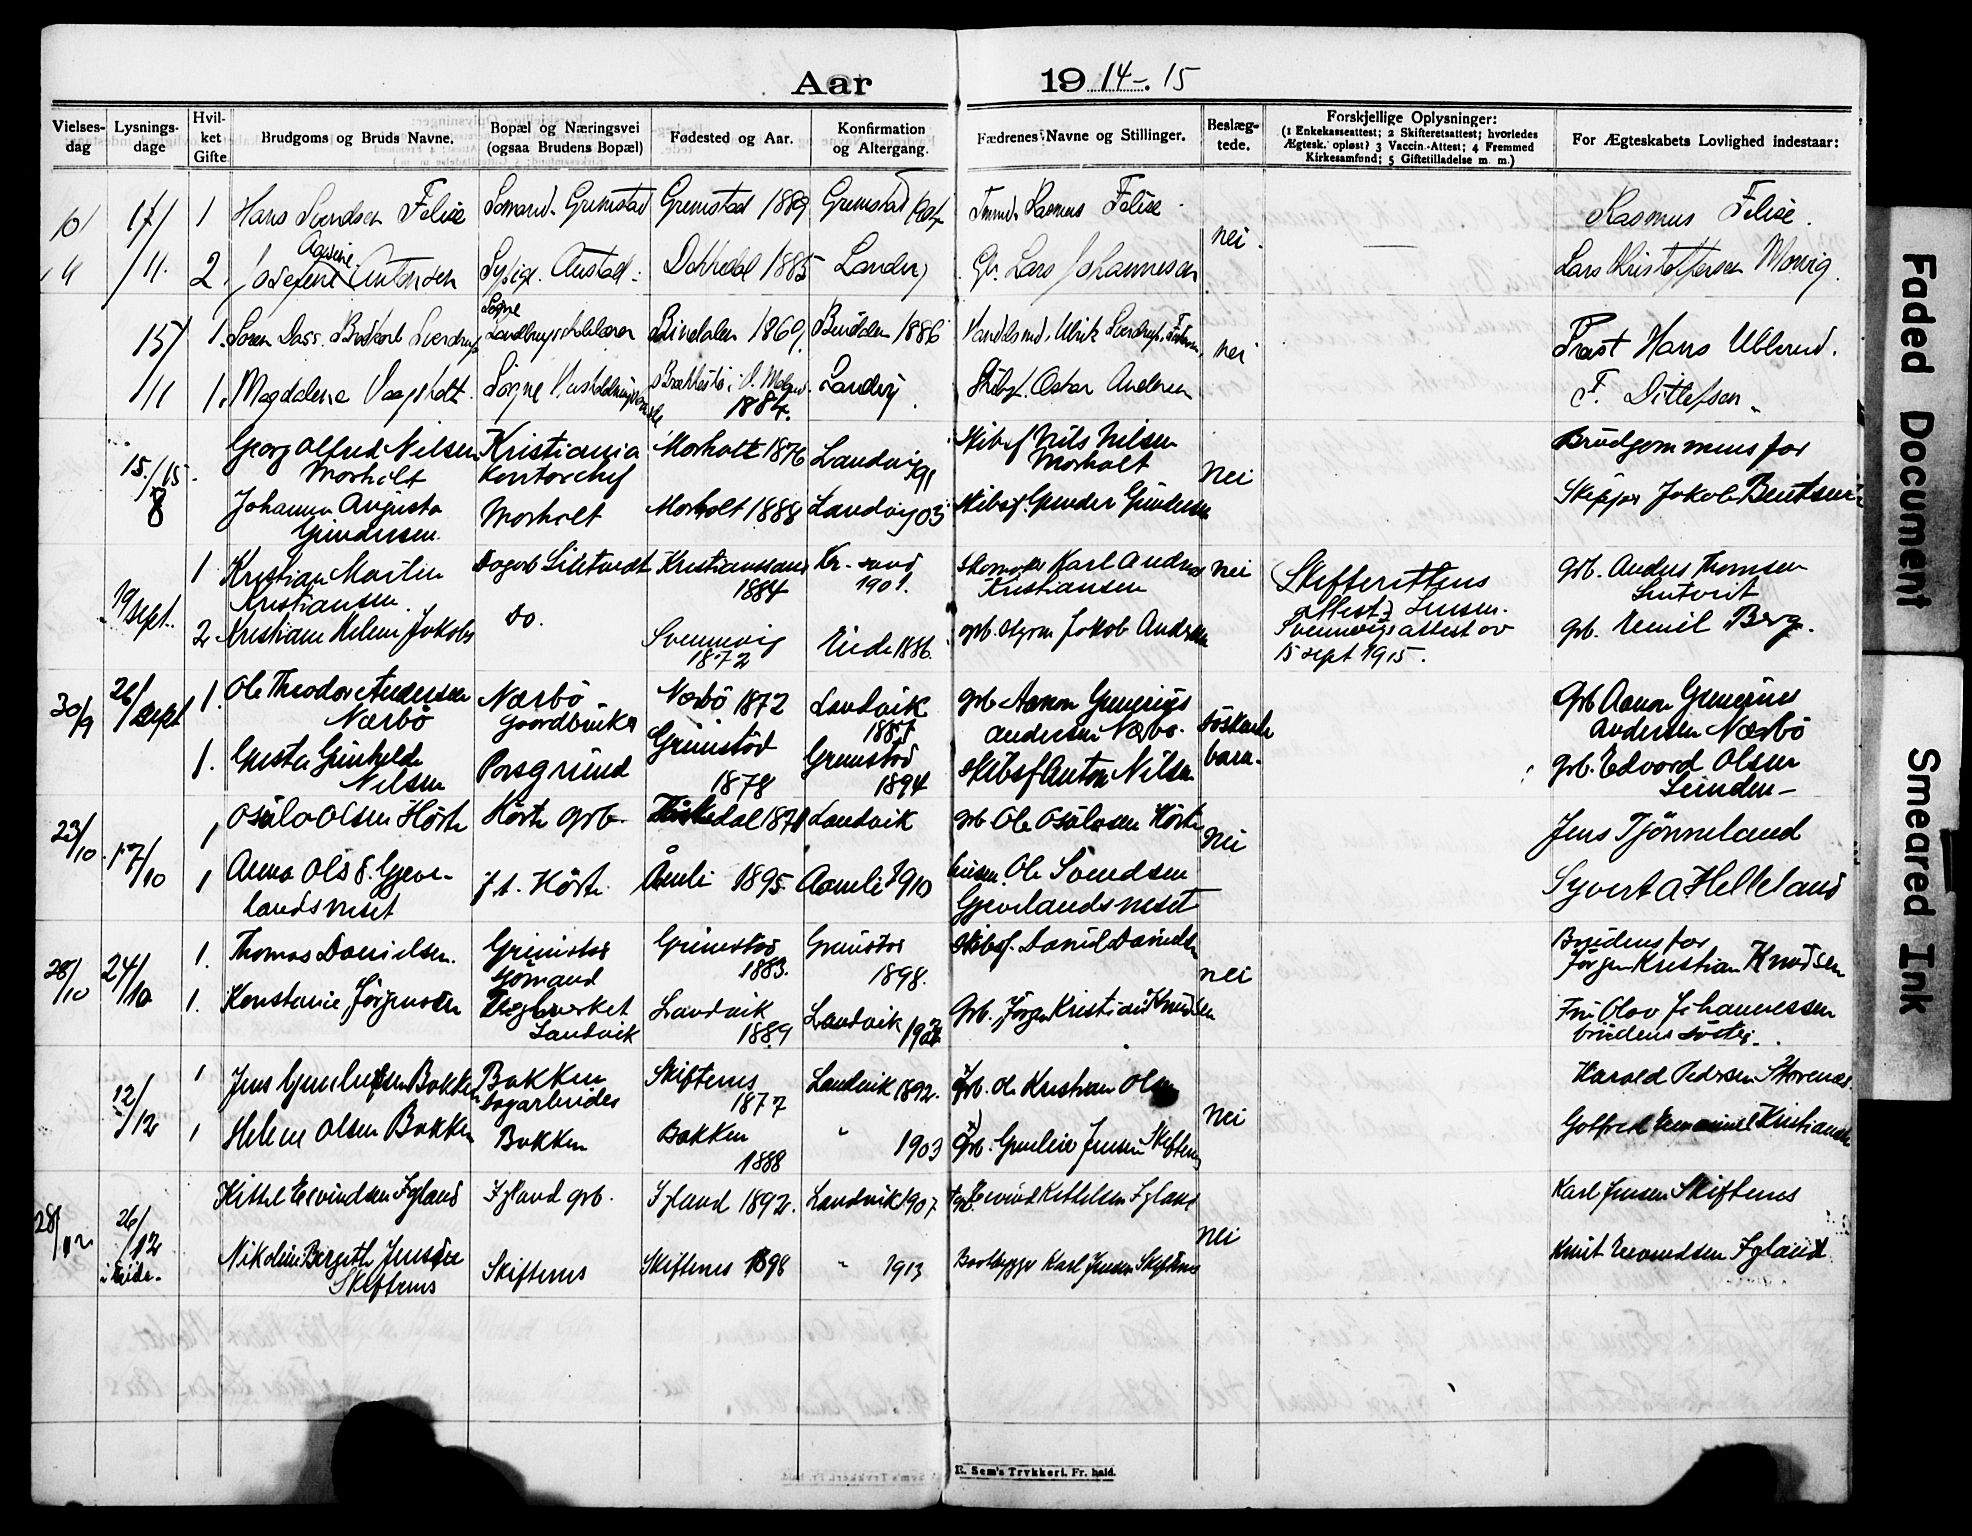 Aar 1914-15
Vielses-dag
Lysnings-dage
Hvil-ket Gifte
Brudgoms og Bruds Navne.
Bopæl og Næringsvei (ogsaa Brudens Bopæl)
Fødested og Aar.
Konfirmation og Altergang.
Fædrenes Navne og Stillinger.
Beslæg-tede.
Forskjellige Oplysninger:
(1 Enkekasseattest; 2 Skifteretsattest; hvorledes
Ægtesk. opløst? 3 Vaccin.-Attest; 4 Fremmed
Kirkesamfund; 5 Giftetilladelse m. m.)
For Ægteskabets Lovlighed indestaar:
17/ 1 Hans Svendsen Felise Grimstad Grimstad 1889 Grimstad Rasmus Felise Rasmus Felise.
nei.
/11. 2 Josefine Antonsen Dokkedal 1885 Landv. Lars Johannesen Lars Kristoffersen Morvig.
15/ 1. Søren Dass Sverdrup Søgne Bindalen 1869. Bindalen 1886 Ulrik Sverdrup Prost Hans Ublerud.
nei
/11 1. Magdalene Vaagsholt Søgne 1884. Landvig F. Ditlefsen
15./15. 8
Georg Alfred Nilsen Morholt Kristiania Kontorchef Morholt 1876 Landvig 91 Skibsf. Nils Nilsen Morholt Brudgommens far
Nei
Johanna Augusta Gundersen Morholt Morholt 1888 Landvig 03 Skibsf. Gunder Gundersen Skipper Jokob Bentsen
19 sept.
1 Kristian Martin Kristiansen. Kristianssand 1884 Kr.sand 1901. Skomaker Karl Andreas Kristiansen nei Skifterettens attest Svennevigs attest av 15 sept 1915. Grb. Anders Thomsen
2 Kristiane Helene Jakobs. Do. Svennevig 1872 Eide 1886. Jokob Andersen grb. Emil Berg.
30/9 26/ sept
1. Ole Theodor Andersen Nærbö Nærbö Gaardbruker Nærbö 1872 Landvik 1887 grb Aanon Gunerius Andersen Nærbö. söskende barn. Grb Aanon Gunerius Andersen Nærbö
1. Gusta Gunhilde Nilsen Porsgrund Grimstad 1878 Grimstad 1894 Skibsf Anton Nilsen grb. Edvard Olsen
23/10 17/10
1 Osulv Olsen Hörte Hörte grb. 1871 Landvik grb Ole Osulvsen Hörte Nei Jens Tjönneland
1 Anna Ols d. Gjeve-landsneset f.t. Hörte Åmli 1895 Aamli 1910 husm. Ole Svendsen Gjevelandsneset Syvert A Helleland
28/10 24/10
1. Thomas Danielsen. Grimstad Sömand Grimstad 1883. Grimstad 1898. Skibsf. Daniel Danielsen nei Brudens far Jörgen Kristian Knudsen
1. Konstanse Jörgensen Teglverket Landvik Landvik 1889 Landvik Grb. Jörgen Kristian Knudsen Fru Olav Johannessen brudens söster.
12/12
1 Jens Gunleifsen Bakken Bakken Sagarbeider Skiftenes 1877 Landvik 1892. Grb. Ole Kristian Olsen Nei Harald Pedersen Storenes
1 Helene Olsen Bakken Bakken Bakken 1888 " 1903 Grb. Gunleiv Jensen Skiftenes Gotfred Emanuel Kristiansen
28/12 26/12 i Eide.
Kittel Eivindsen Igland Igland grb. Igland 1892. Landvik 1907 Grb. Eivind Kittelsen Igland nei Karl Jensen Skiftenes
Nikoline Bergitte Jensine Skiftenes Skiftenes Skiftenes 1898 " 1913 Baatbygger Karl Jensen Skiftenes Knut Eivindsen Igland
E. Sem's Trykkeri. Fr. hald.
Faded Document
Smeared Ink